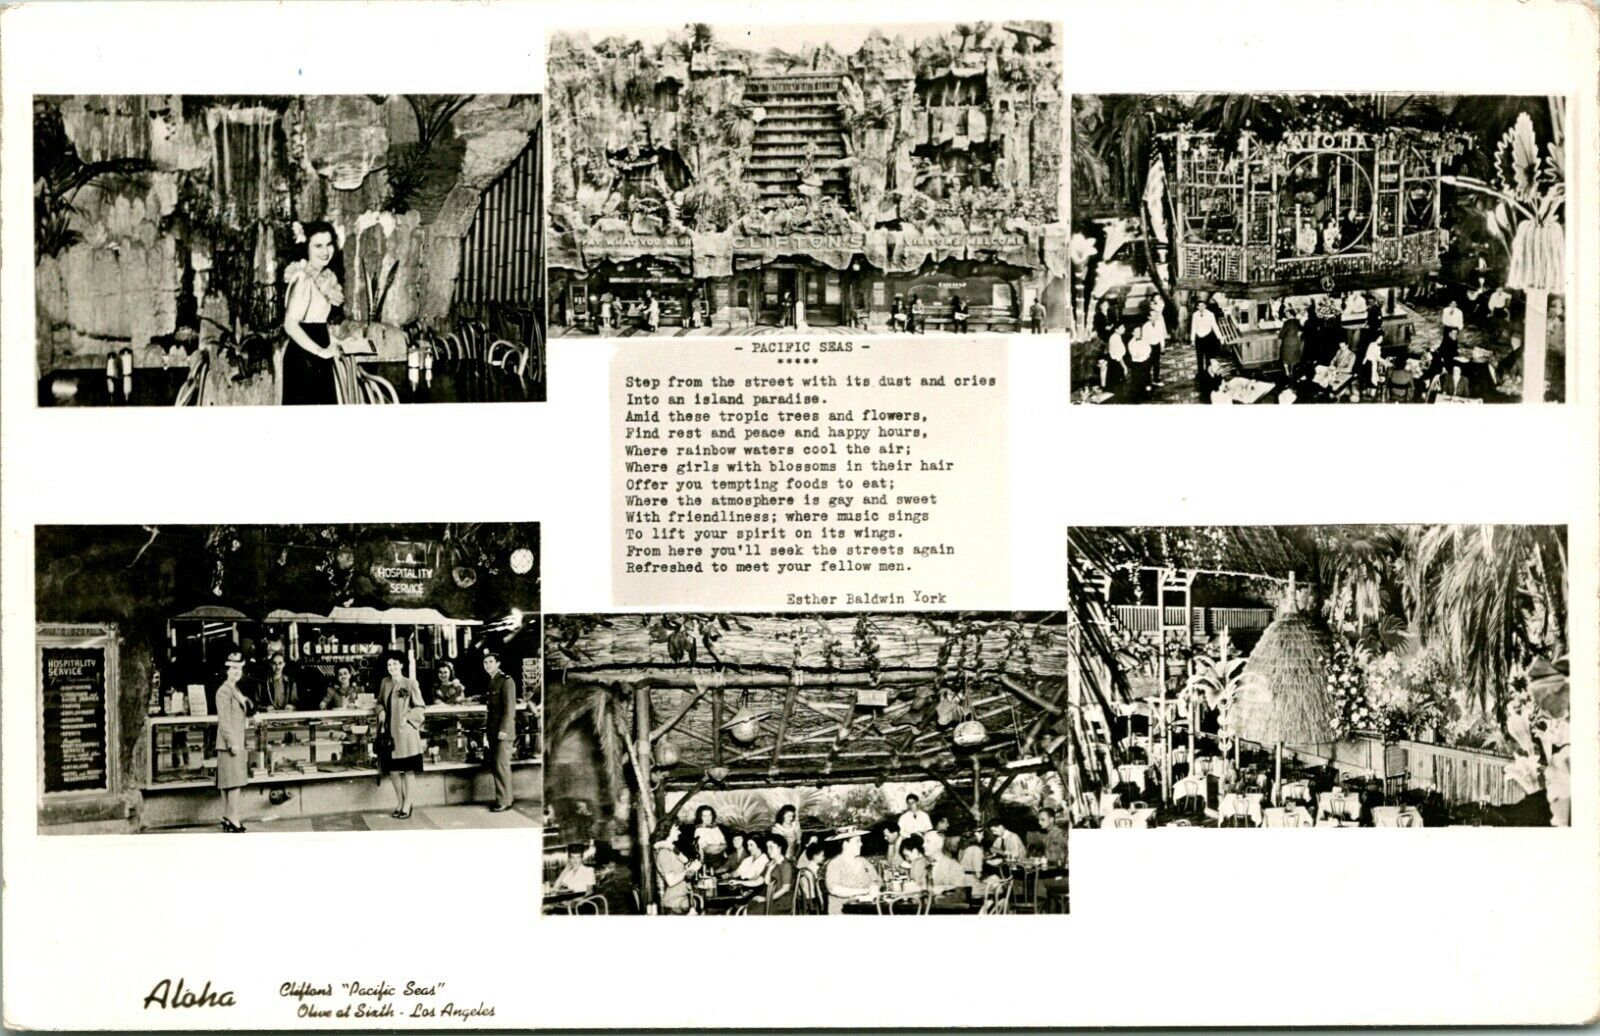 PAY WHAT YOU WISH
CLIFTON'S
VISITORS WELCOME
ALOHA
- PACIFIC SEAS -
*****
Step from the street with its dust and cries
Into an island paradise.
Amid these tropic trees and flowers,
Find rest and peace and happy hours,
Where rainbow waters cool the air;
Where girls with blossoms in their hair
Offer you tempting foods to eat;
Where the atmosphere is gay and sweet
With friendliness; where music sings
To lift your spirit on its wings.
From here you'll seek the streets again
Refreshed to meet your fellow men.
Esther Baldwin York
L.A.
HOSPITALITY
SERVICE
CLIFTON'S
MENU
HOSPITALITY
SERVICE
Aloha
Clifton's "Pacific Seas"
Olive at Sixth - Los Angeles